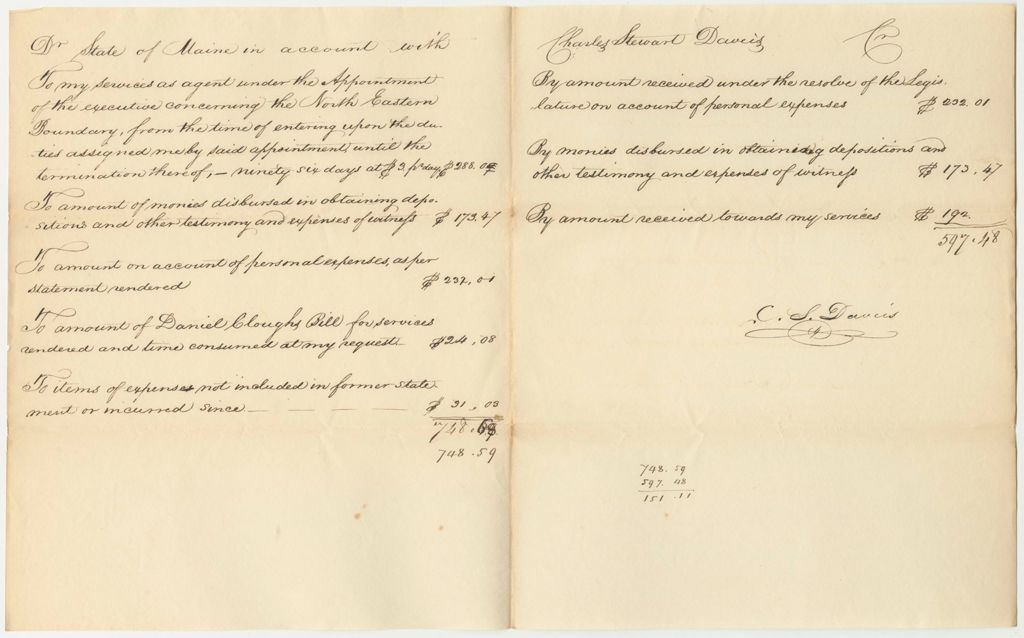 Dr State of Maine in account with
To my services as agent under the Appointment
of the executive concerning the North Eastern
Boundary, from the time of entering upon the du-
ties assigned me by said appointment until the
termination thereof, — ninety six days at $3 pr day $288.00
To amount of monies disbursed in obtaining depo-
sitions and other testimony and expenses of witness $173.47
To amount on account of personal expenses, as per
statement rendered $232,01
To amount of Daniel Cloughs Bill for services
rendered and time consumed at my request $24,08
To items of expenses not included in former state
ment or incurred since — — — — $31,03
748.
748.59
Charles Stewart Daveis Cr
By amount received under the resolve of the Legis-
lature on account of personal expenses $232.01
By monies disbursed in obtaining depositions and
other testimony and expenses of witness $173.47
By amount received towards my services $192.
597.48
C. S. Daveis
748.59
597.48
151.11